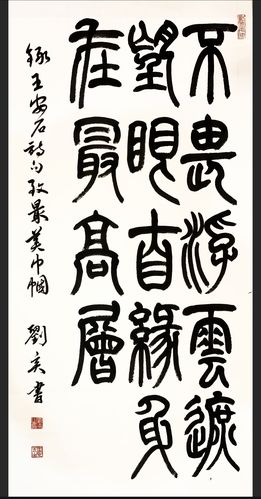 不畏浮雲遮
望眼自緣身
在最高層
錄王安石詩句致最美巾幗 劉書